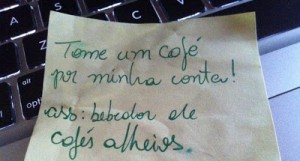 A
S
C
alt
option
Tome um café
por minha conta!
ass: bebedor de
cafés alheios.